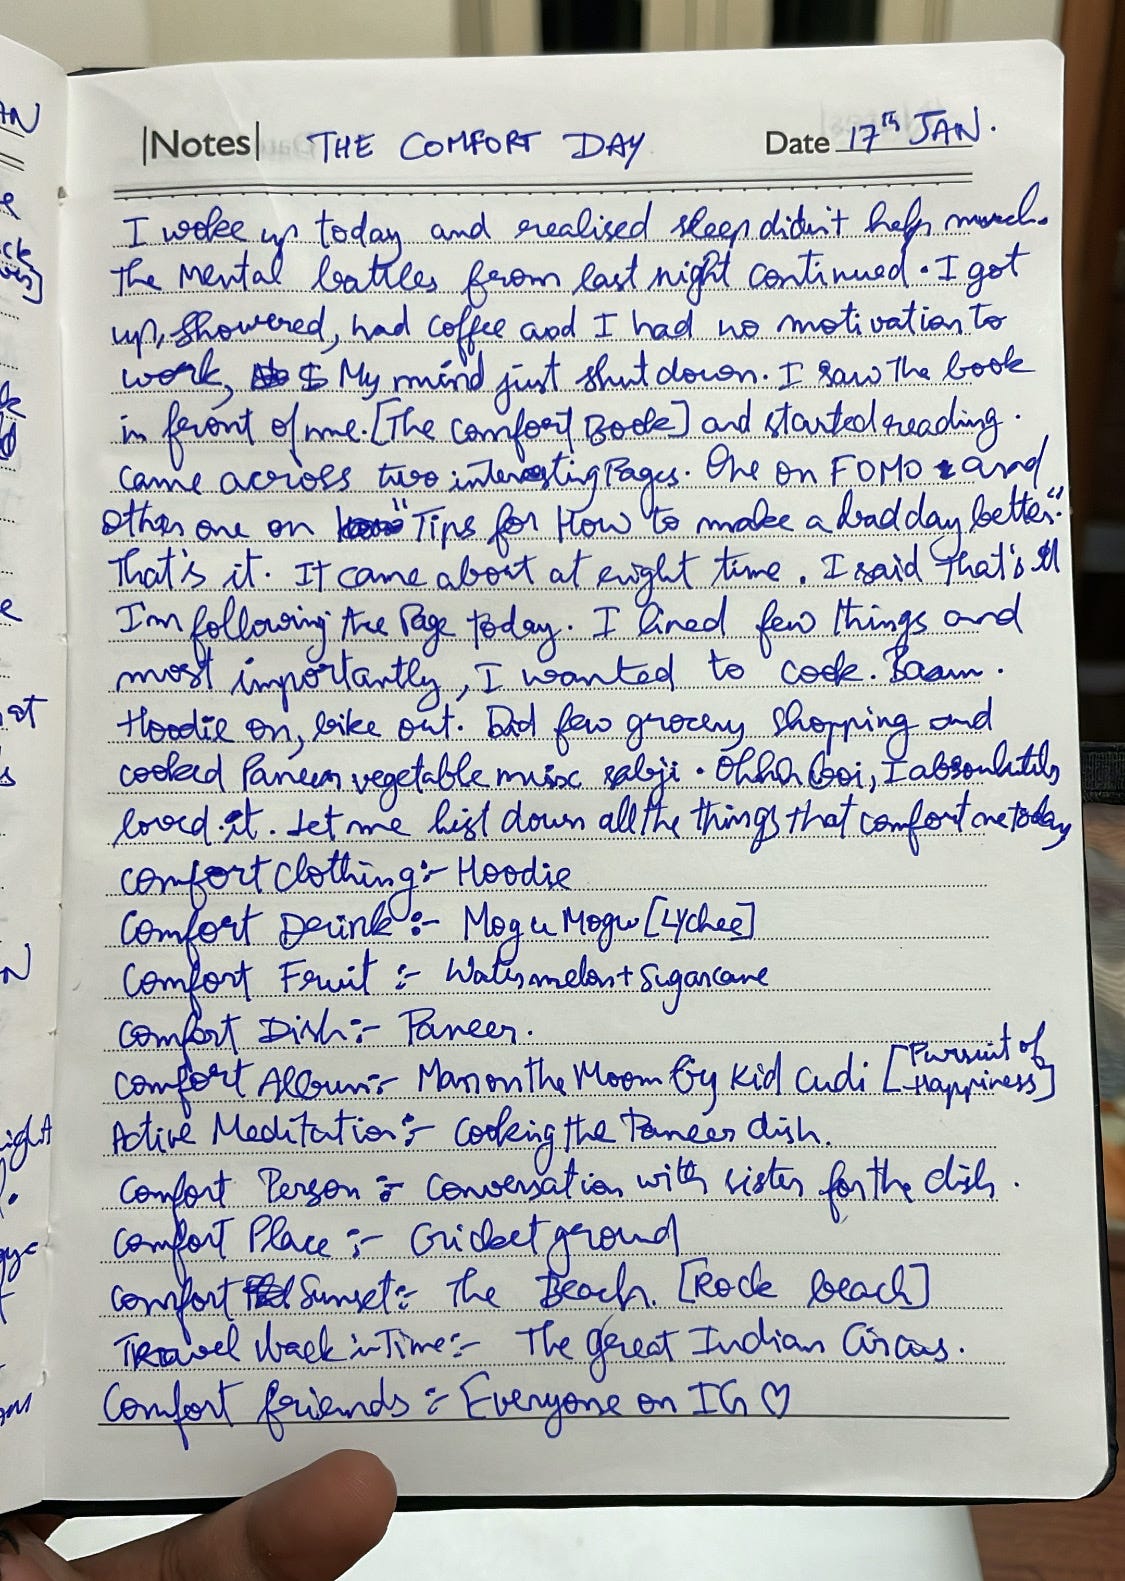 |Notes| THE COMFORT DAY Date 17th JAN.
I woke up today and realised sleep didn't help much.
The mental battles from last night continued. I got
up, showered, had coffee and I had no motivation to
work, My mind just shut down. I saw the book
in front of me. [The Comfort Book] and started reading.
came across two interesting Pages. One on FOMO and
other one on "Tips for How to make a bad day better."
That's it. It came about at right time. I said that's it
I'm following the Page today. I lined few things and
most importantly, I wanted to cook. Baam.
Hoodie on, bike out. Did few grocery shopping and
cooked Paneer vegetable mix sabji. Ohhh boi, I absolutely
loved it. Let me list down all the things that comfort me today
Comfort Clothing:- Hoodie
Comfort Drink:- Mogu Mogu [Lychee]
Comfort Fruit :- Watermelon + Sugarcane
Comfort Dish:- Paneer.
Comfort Album:- Man on the Moon by Kid Cudi [Pursuit of Happiness]
Active Meditation:- Cooking the Paneer dish.
Comfort Person :- Conversation with sister for the dish.
Comfort Place :- Cricket ground
Comfort Sunset:- The Beach. [Rock beach]
Travel back in Time:- The great Indian Circus.
Comfort friends :- Everyone on IG ♡